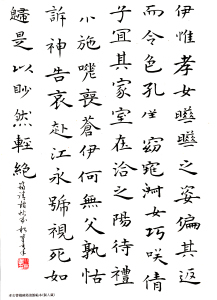 伊惟孝女曄曄之姿偏其返
而令色孔儀窈窕淑女巧咲倩
子宜其家室在洽之陽待禮
未施嗟喪蒼伊何無父孰怙
訴神告哀赴江永號視死如
歸是以眇然輕絕